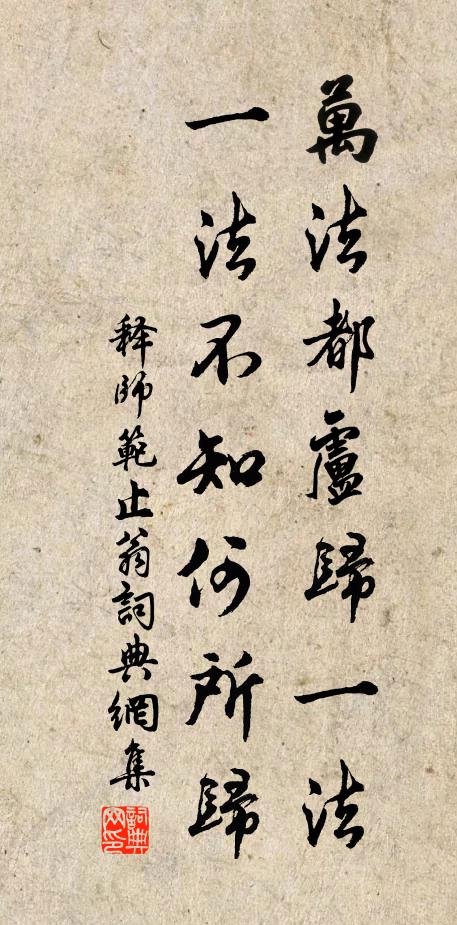 萬法都盧歸一法
一法不知何所歸
释師範止翁詞典網集
詞典网印